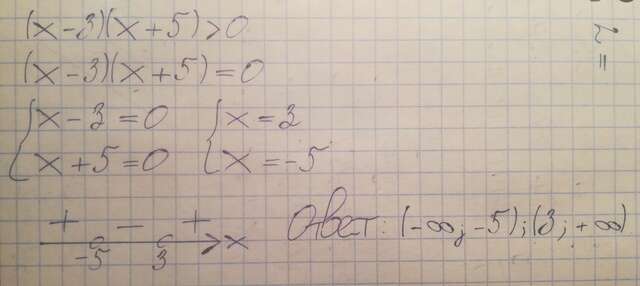 (x-3)(x+5)>0
(x-3)(x+5)=0
{x-3=0 {x=3
{x+5=0 {x=-5
+ - +
-5 3 x
Ответ: (-∞;-5);(3;+∞)
2=